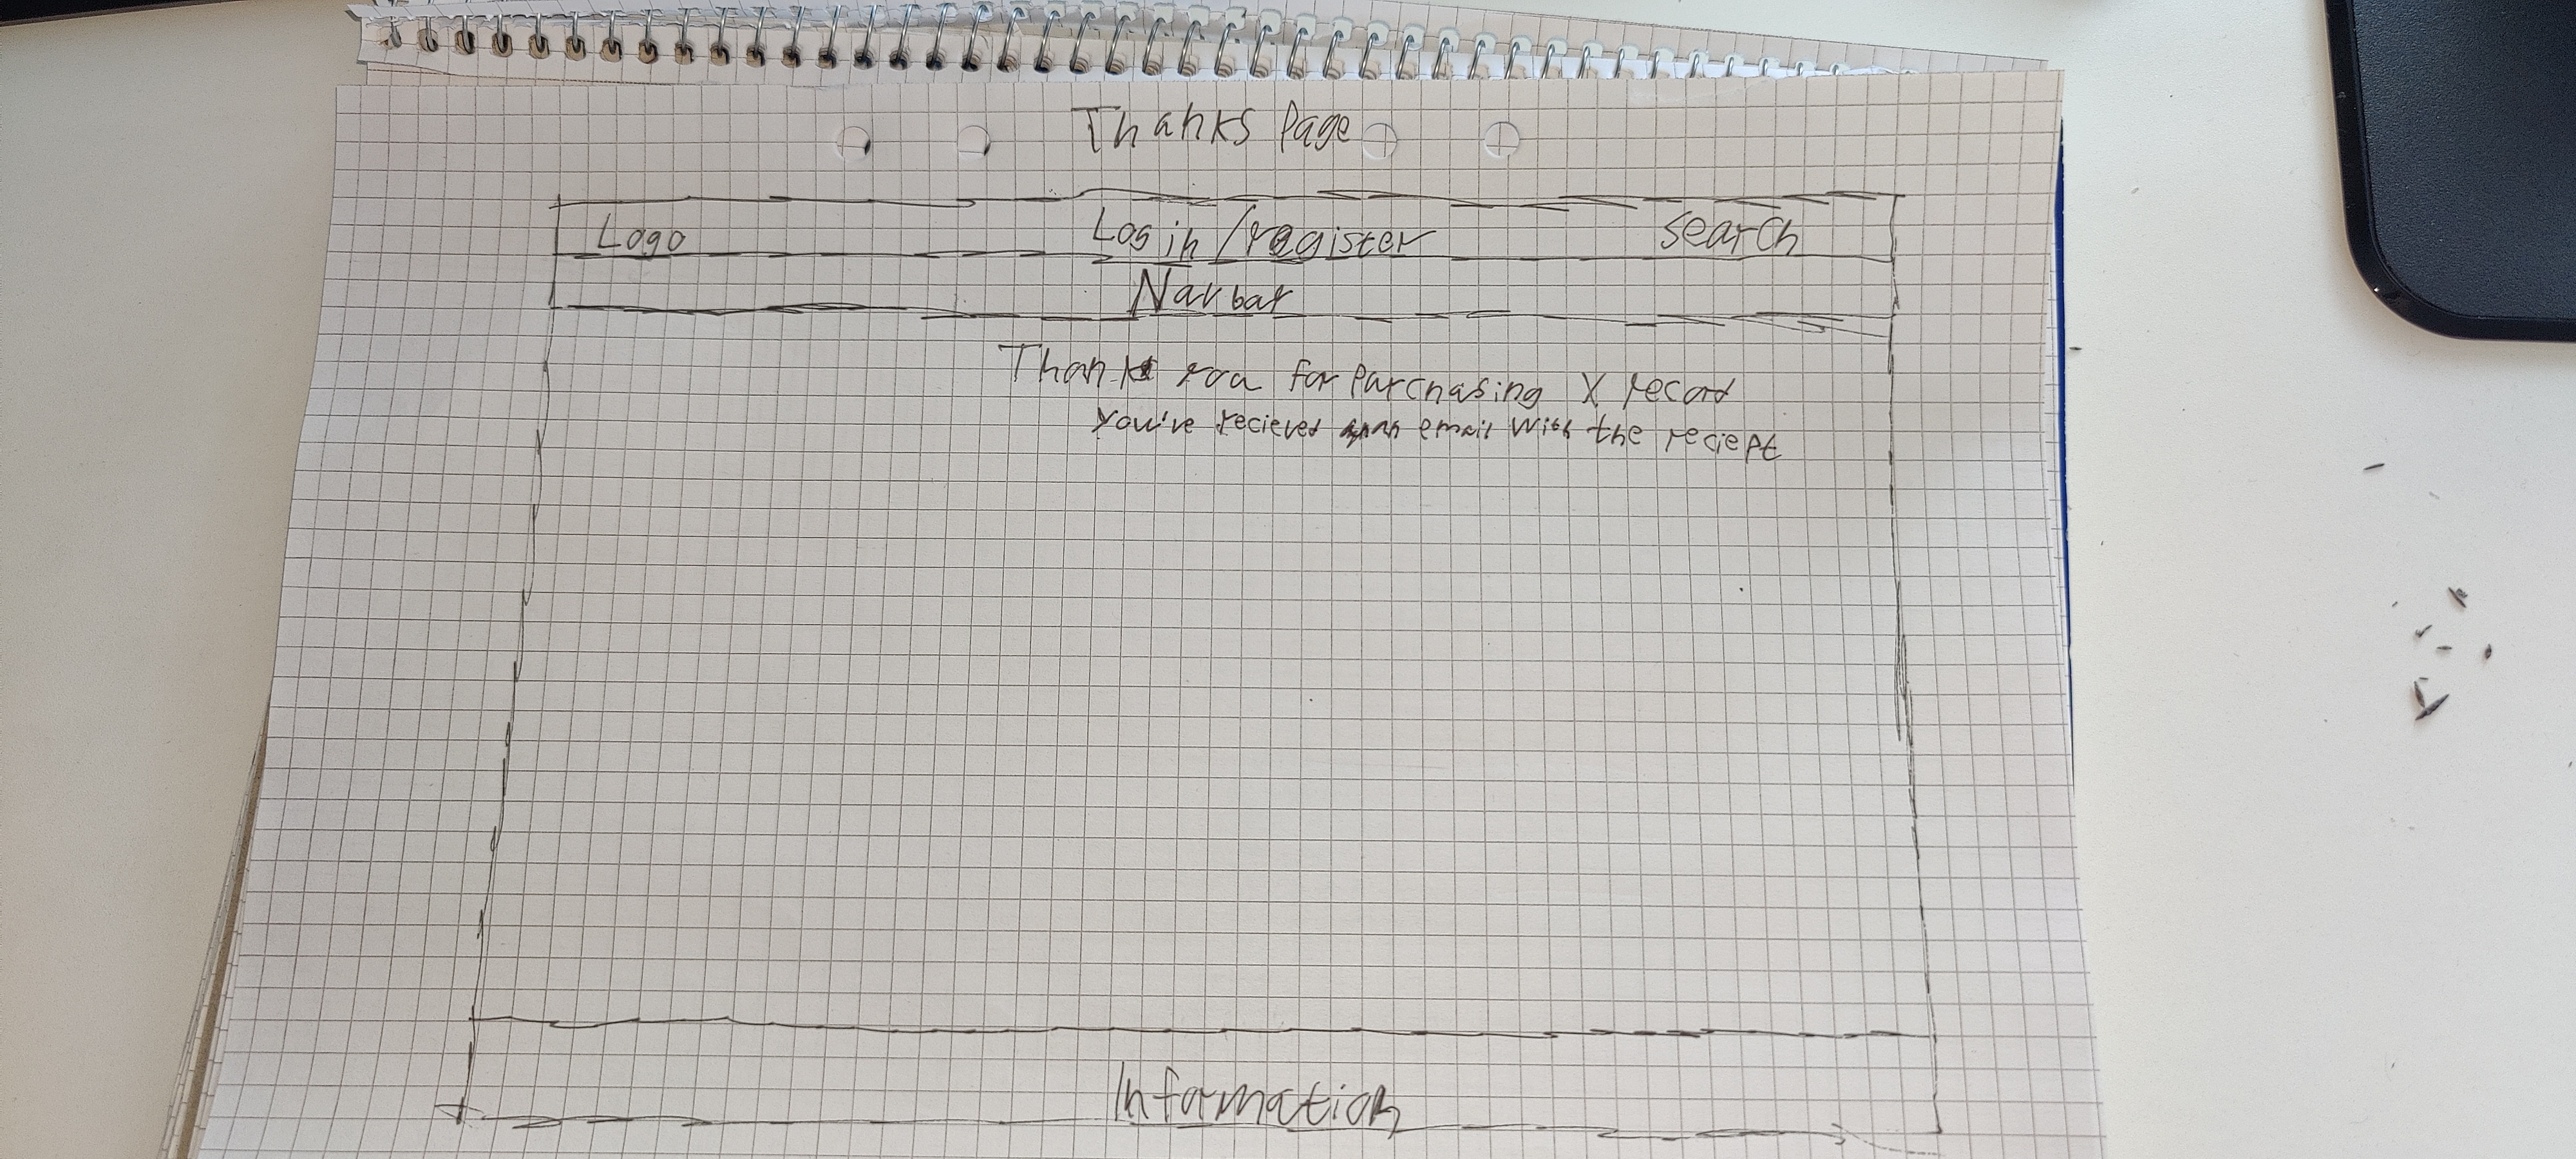 Thanks Page
Logo Login/register search
Navbar
Thank you for Purchasing X record
You've recieved an email with the reciept
Information